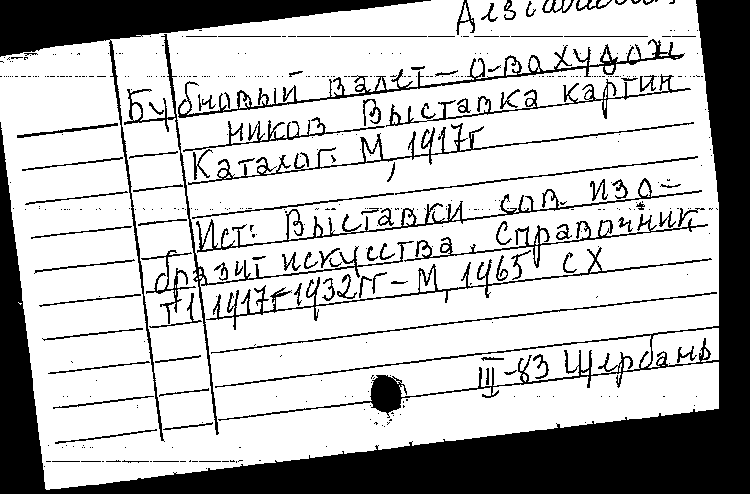 Бубновый валет – о-ва худож
ников Выставка картин
Каталог. М, 1917г
Ист: Выставки сов. изо-
бразит искусства. Справочник
т1 1917г-1932гг – М, 1965 СХ
III-83 Щербань